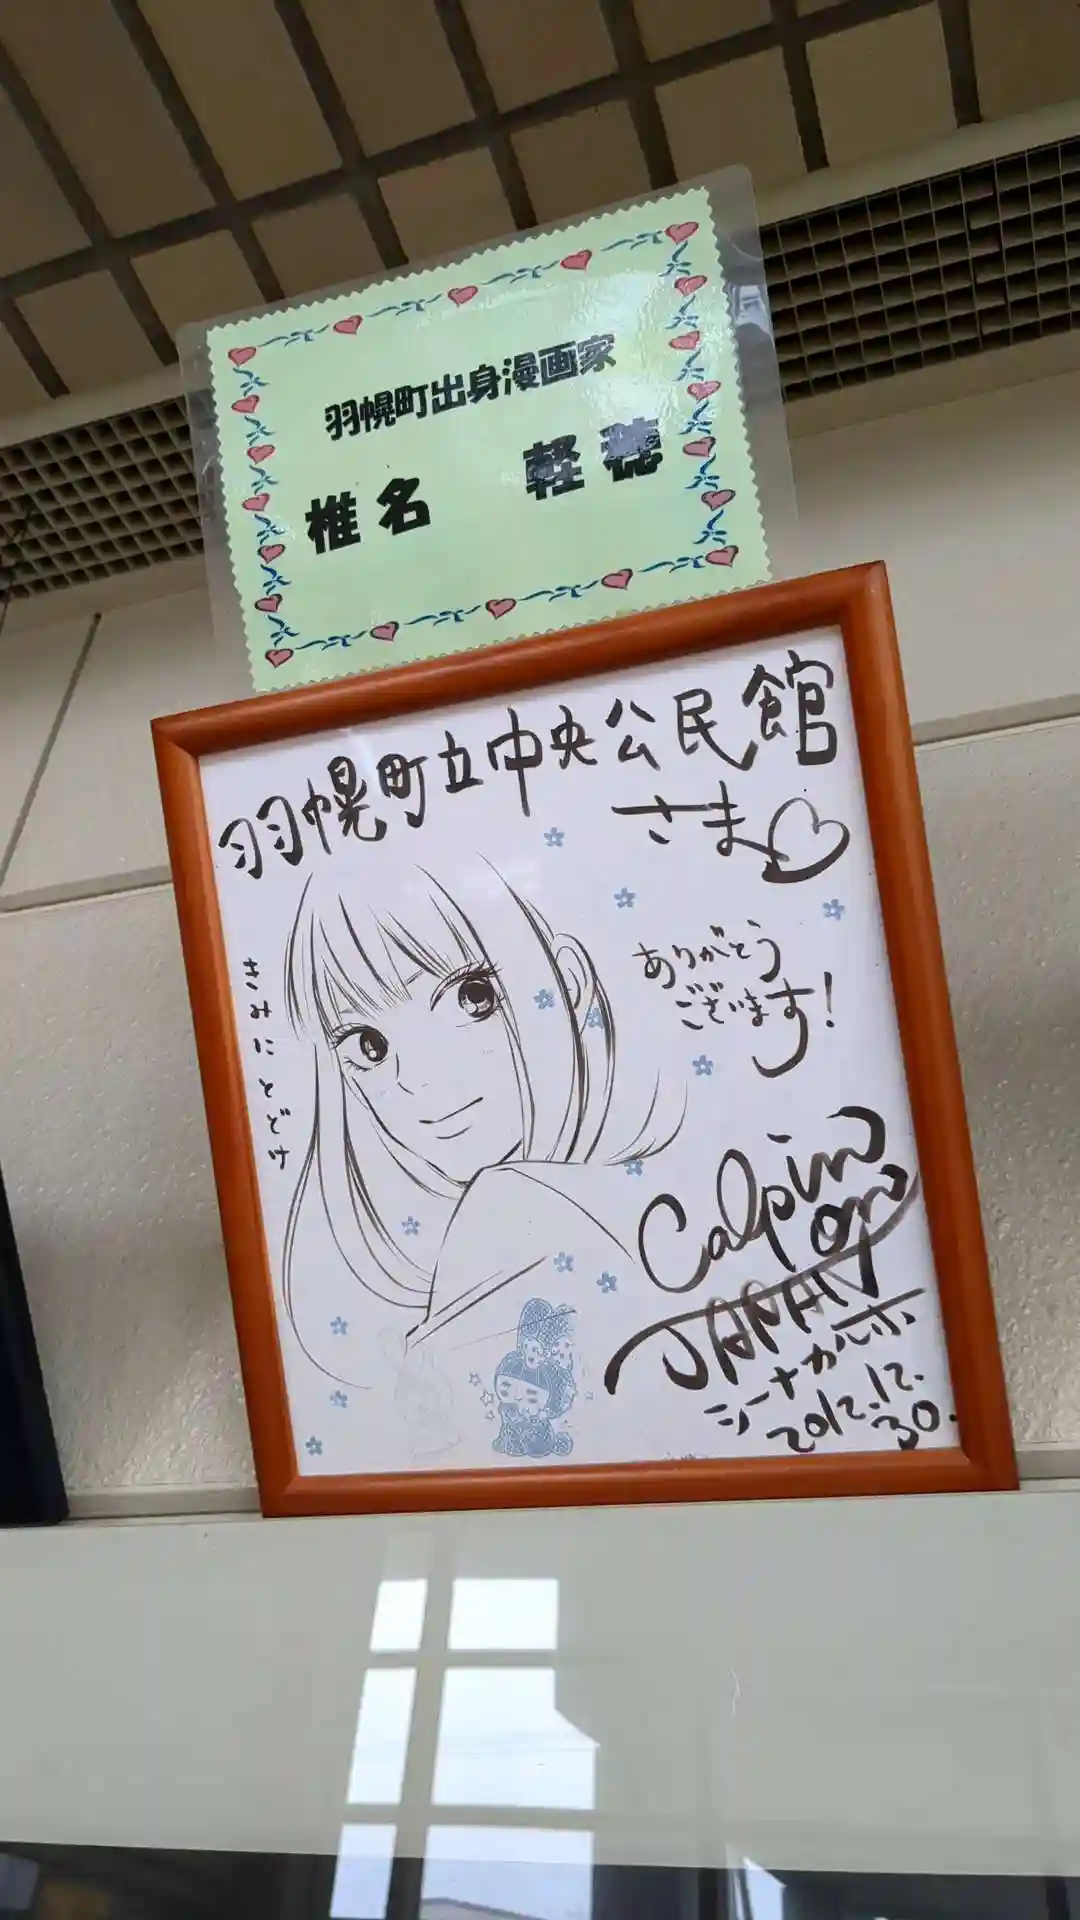 羽幌町出身漫画家
椎名 軽穂
羽幌町立中央公民館
さま♡
きみにとどけ
ありがとう
ございます!
2012.12.
30.